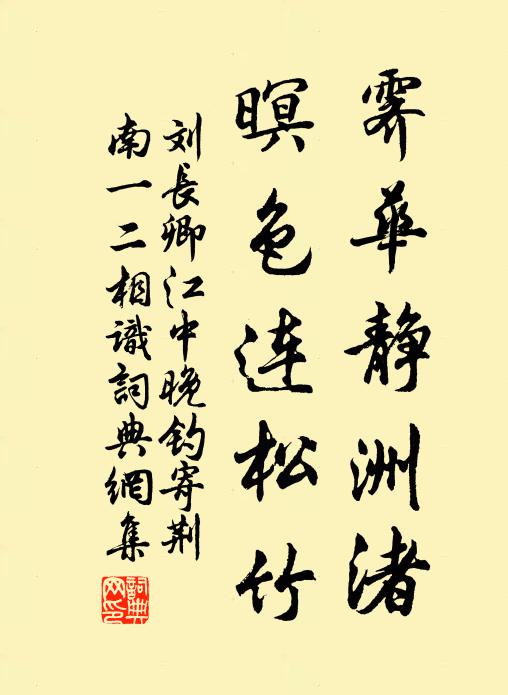 霽華靜洲渚
暝色連松竹
刘長卿江中晚釣寄荆
南一二相識詞典網集
詞典
网印